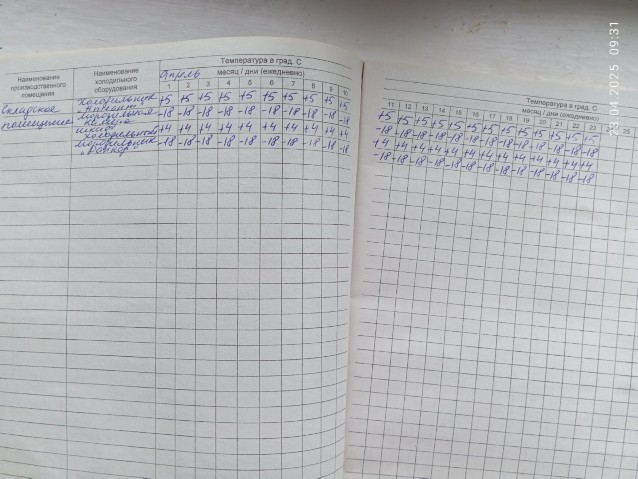 Температура в град. С
Наименование производственного помещения
Наименование холодильного оборудования
Апрель месяц / дни (ежедневно)
1 2 3 4 5 6 7 8 9 10
Складское помещение
Холодильник +5 +5 +5 +5 +5 +5 +5 +5 +5 +5
-18 -18 -18 -18 -18 -18 -18 -18 -18 -18
+4 +4 +4 +4 +4 +4 +4 +4 +4 +4
-18 -18 -18 -18 -18 -18 -18 -18 -18 -18
Температура в град. С
месяц / дни (ежедневно)
11 12 13 14 15 16 17 18 19 20 21 22 23 25
+5 +5 +5 +5 +5 +5 +5 +5 +5 +5 +5 +5 +5
-18 -18 -18 -18 -18 -18 -18 -18 -18 -18 -18 -18 -18
+4 +4 +4 +4 +4 +4 +4 +4 +4 +4 +4 +4 +4
-18 -18 -18 -18 -18 -18 -18 -18 -18 -18 -18 -18 -18
04.2025 09:31